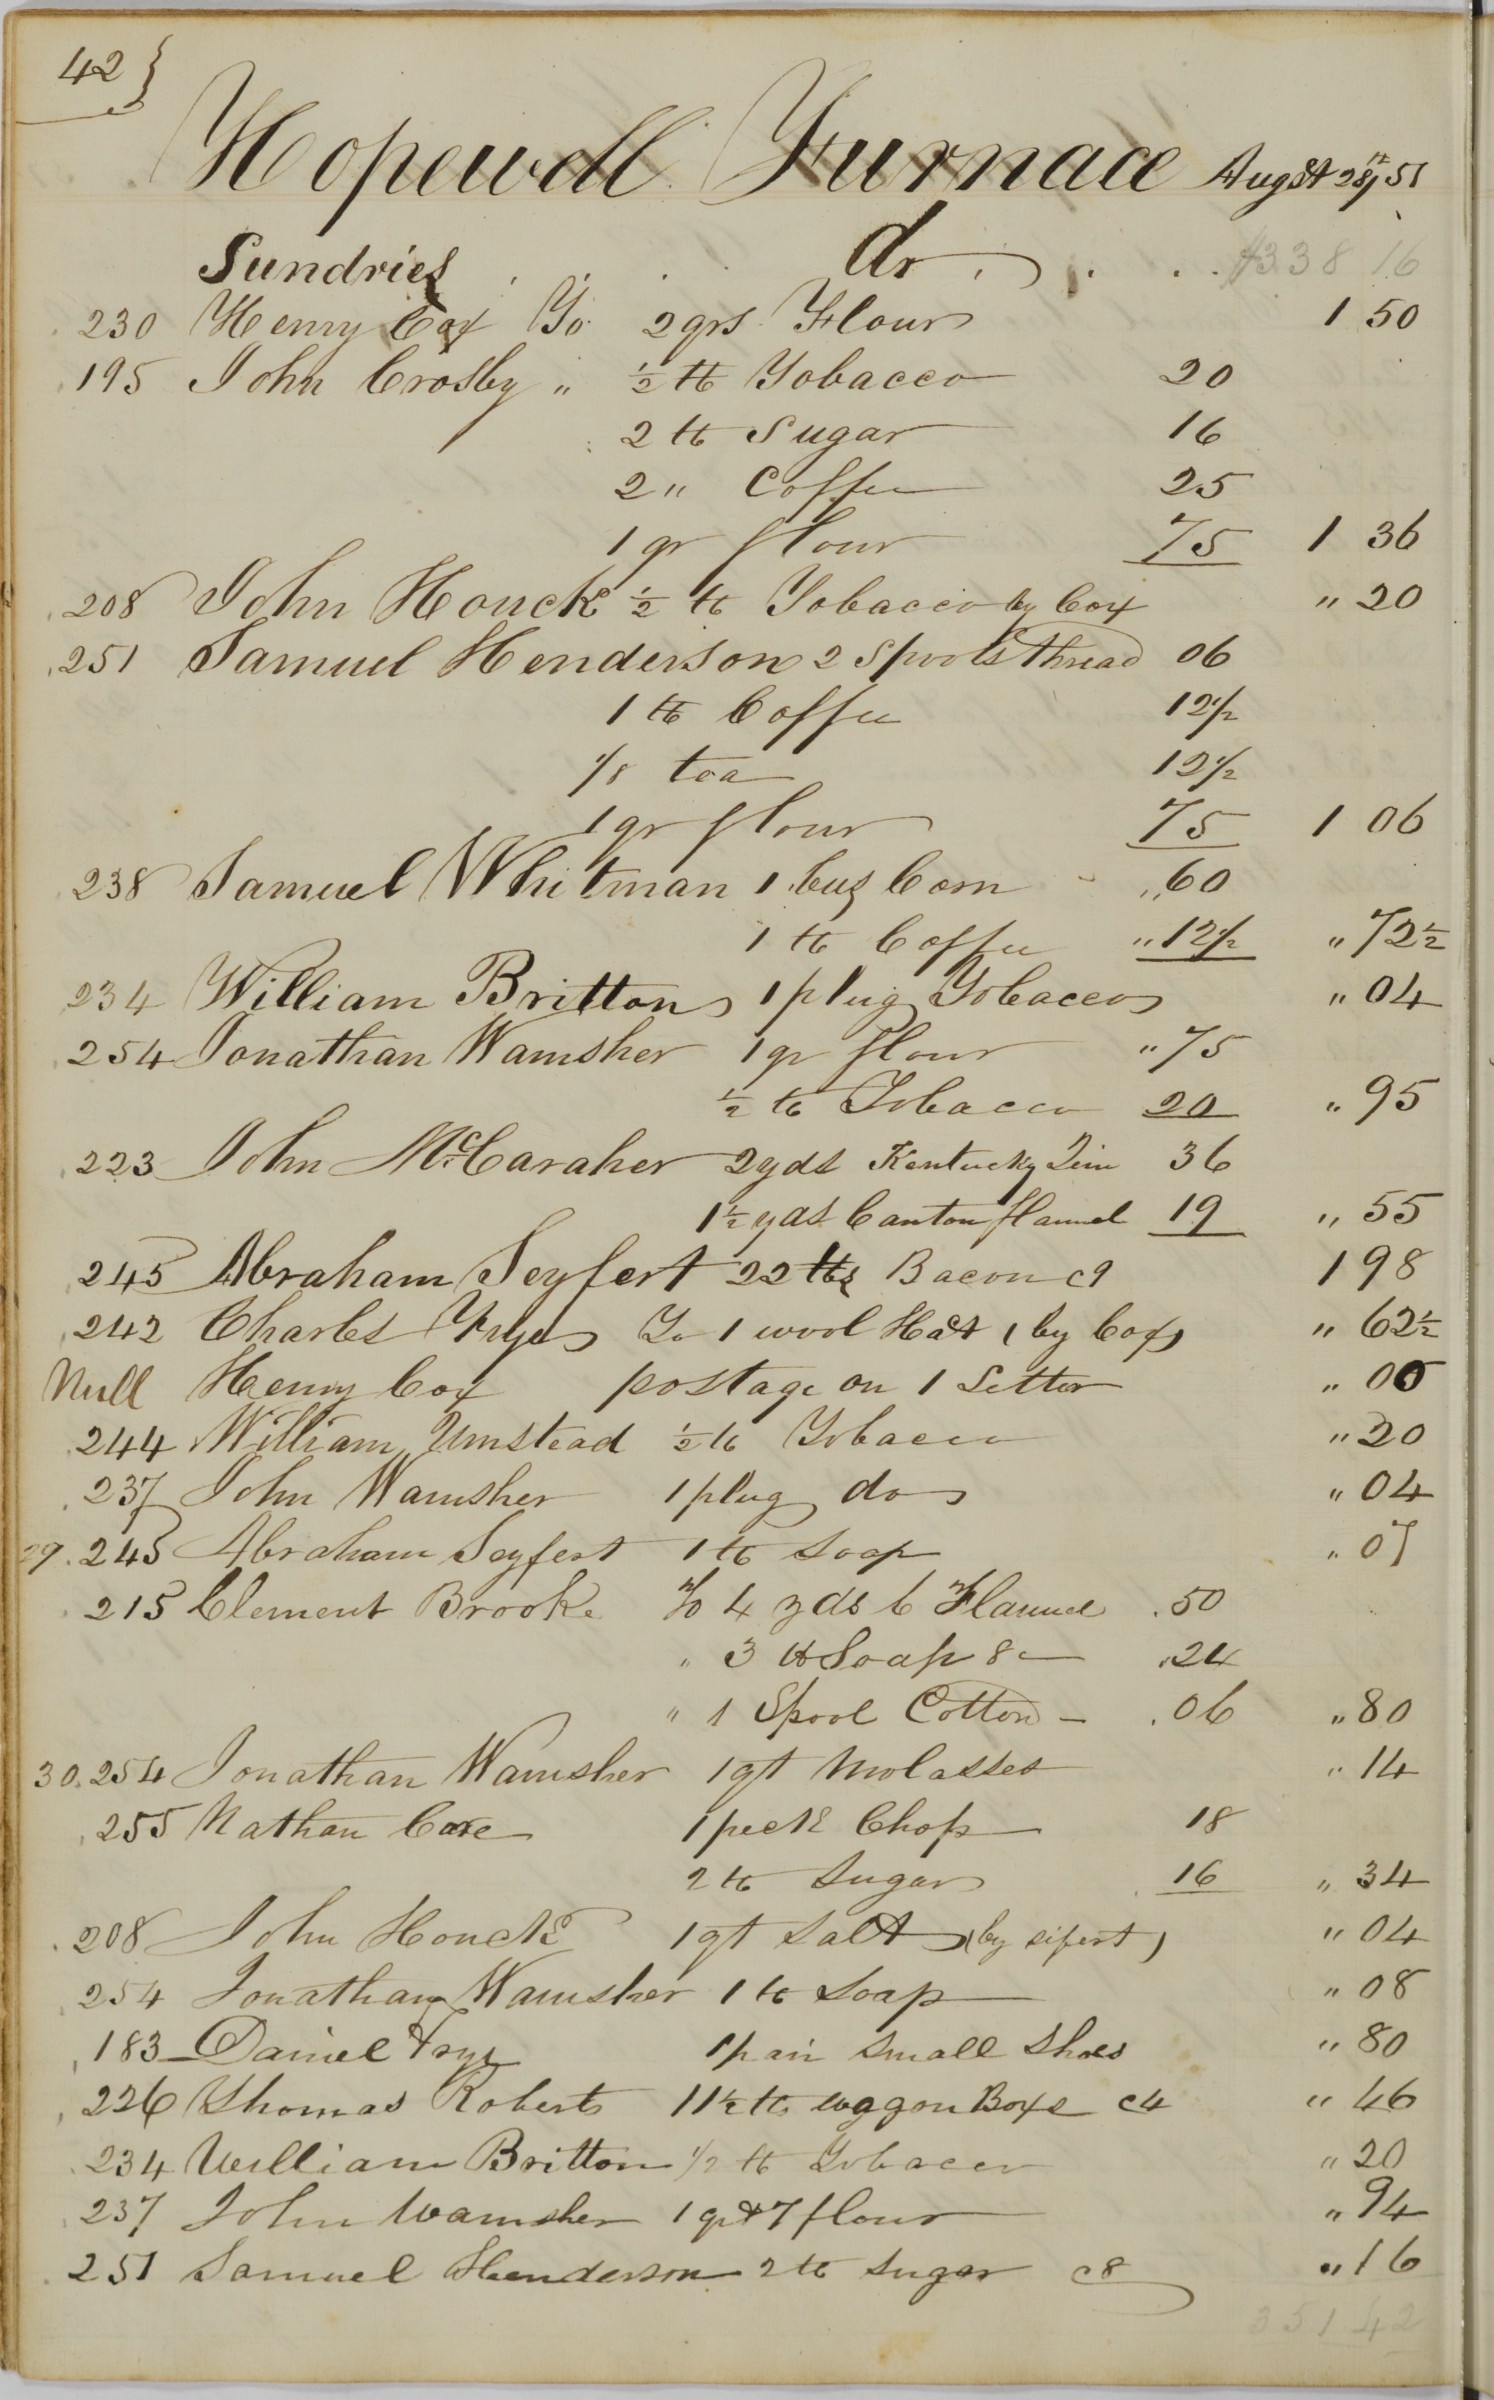 42}
Hopewell Furnace Augst 28th 51
Sundries dr $338 16
230 Henry Cox To 2 qrs Flour 1 50
195 John Crosby " ½ lb Tobacco 20
2 lb Sugar 16
2 " Coffee 25
1 qr flour 75 1 36
208 John Houck ½ lb Tobacco by Cox " 20
251 Samuel Henderson 2 Spools thread 06
1 lb Coffee 12½
1/8 tea 12½
1 qr flour 75 1 06
238 Samuel Whitman 1 bus Corn " 60
1 lb Coffee " 12½ " 72½
234 William Britton 1 plug Tobacco " 04
254 Jonathan Wamsher 1 qr flour " 75
½ lb Tobacco 20 " 95
223 John McCaraher 2 yds Kentucky 36
1½ yds Canton flannel 19 " 55
245 Abraham Seyfert 22 lbs Bacon c9 1 98
242 Charles Frye To 1 wool Hat (by Cox) " 62½
Null Henry Cox postage on 1 Letter " 00
244 William Umstead ½ lb Tobacco " 20
237 John Wamsher 1 plug do " 04
29. 245 Abraham Seyfert 1 lb Soap " 07
215 Clement Brooke To 4 yds C Flannel .50
" 3 lb Soap 8 .24
" 1 Spool Cotton .06 " 80
30. 254 Jonathan Wamsher 1 qt Molasses " 14
255 Nathan Care 1 peck Chop 18
2 lb Sugar 16 " 34
208 John Houck 1 qt Salt (by sifert) " 04
254 Jonathan Wamsher 1 lb Soap " 08
183 Daniel Frye 1 pair small Shoes " 80
226 Thomas Roberts 11½ lb waggon Boxes c4 " 46
234 William Britton 1/2 lb Tobacco " 20
237 John Wamsher 1 qr & 7 flour " 94
251 Samuel Henderson 2 lb Sugar c8 " 16
351 42